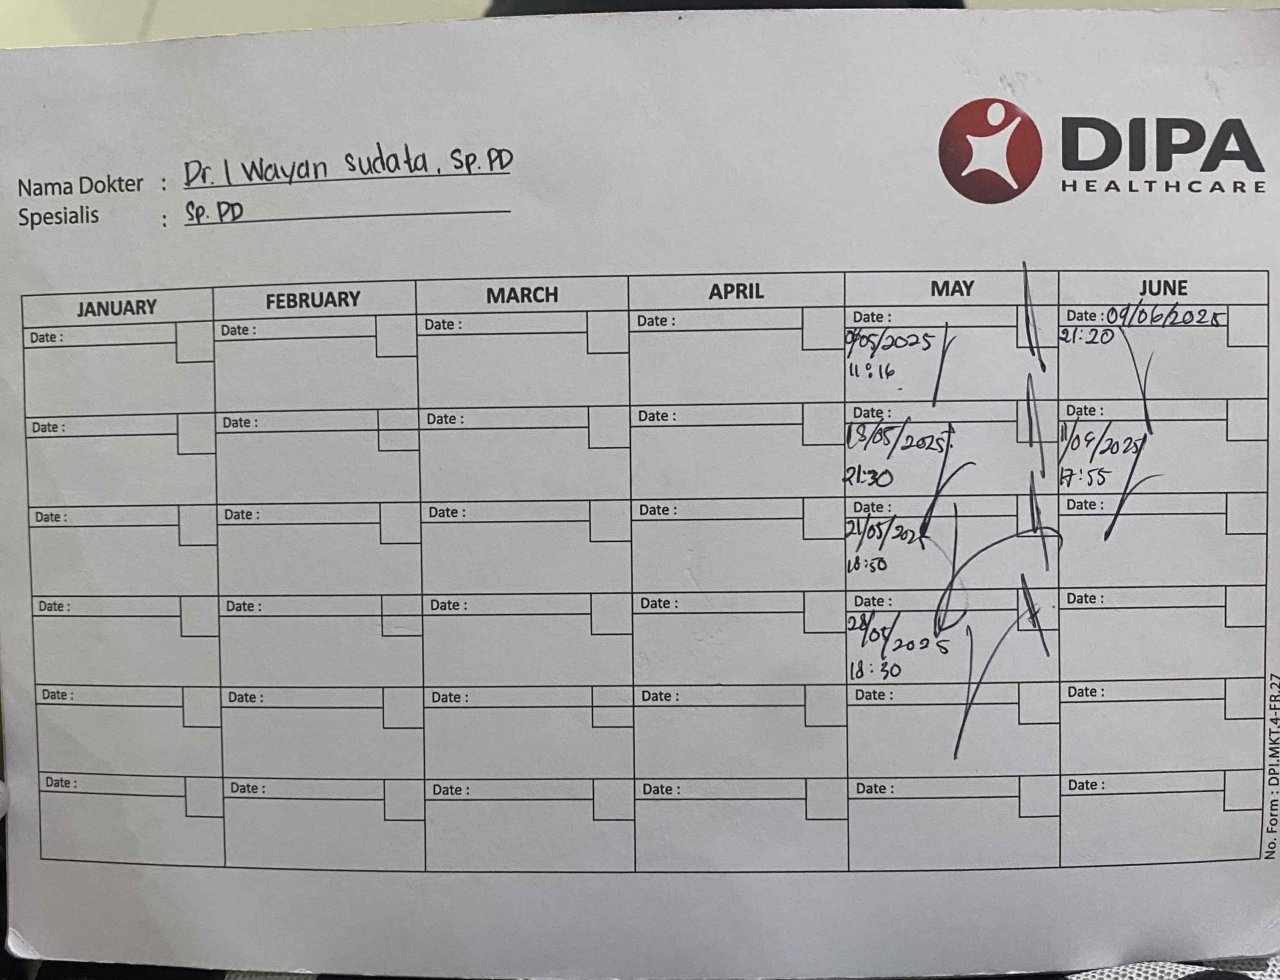 DIPA
HEALTHCARE
Nama Dokter : Dr. I Wayan Sudata, Sp.PD
Spesialis : Sp.PD
JANUARY FEBRUARY MARCH APRIL MAY JUNE
Date : Date : Date : Date : Date : Date : 09/06/2025
/05/2025 21:20
11:16
Date : Date : Date : Date : Date : Date :
/05/2025 11/06/2025
21:30 17:55
Date : Date : Date : Date : Date : Date :
21/05/202
18:50
Date : Date : Date : Date : Date : Date :
28/05/2025
18:30
Date : Date : Date : Date : Date : Date :
Date : Date : Date : Date : Date : Date :
No. Form : DPI.MKT.4-FR.27